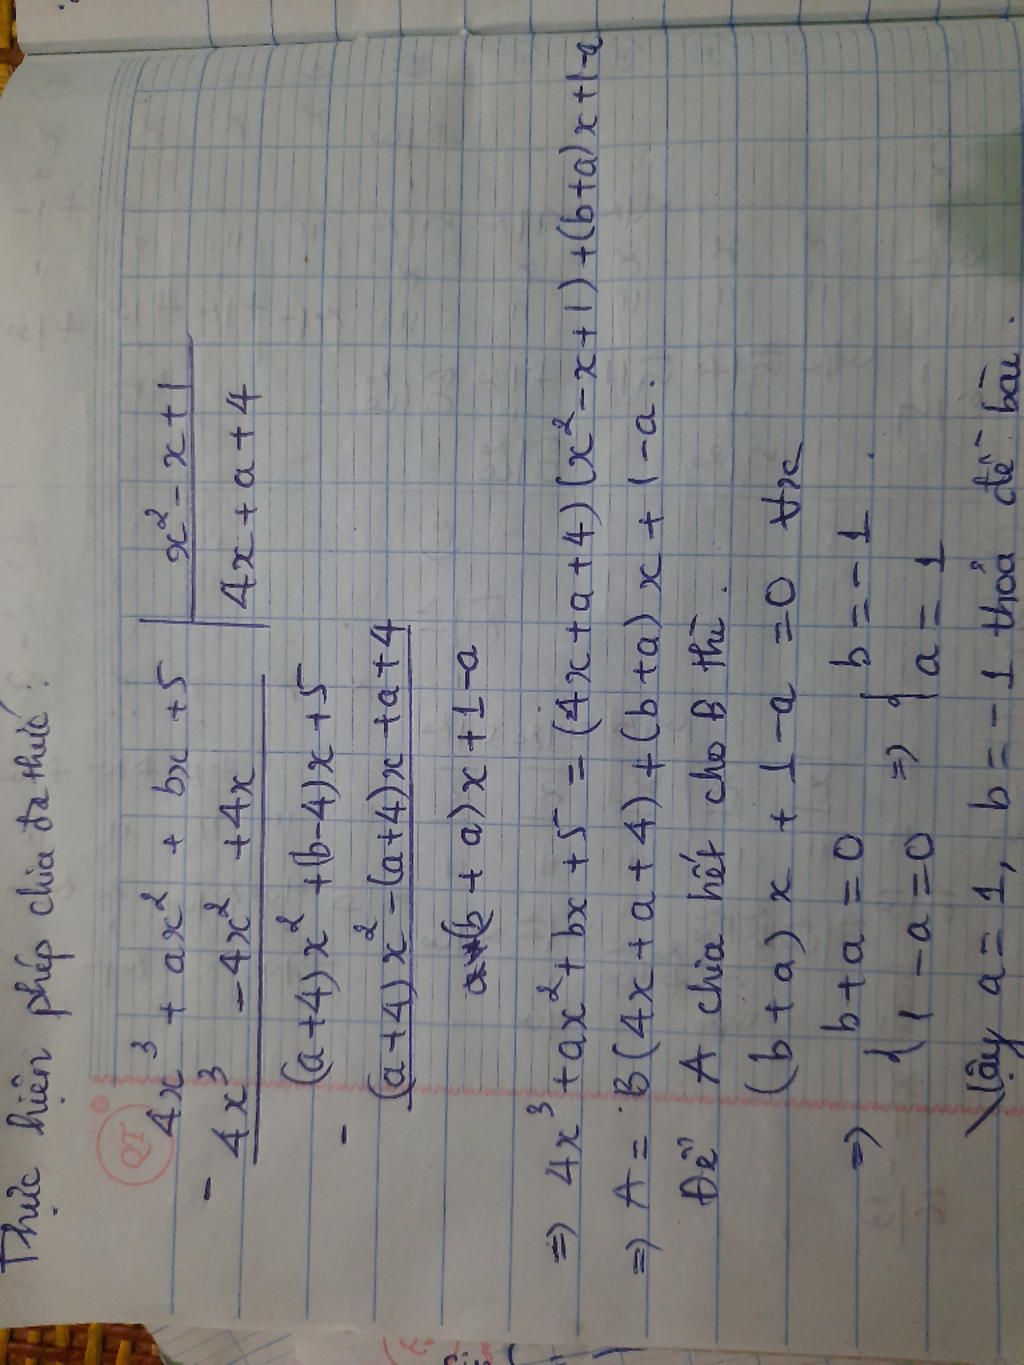 Thực hiện phép chia đa thức:
4x³ + ax² + bx + 5 | x² - x + 1
- 4x³ - 4x² + 4x | 4x + a + 4
(a+4)x² + (b-4)x + 5
- (a+4)x² - (a+4)x + a + 4
(b + a)x + 1 - a
=) 4x³ + ax² + bx + 5 = (4x + a + 4)(x² - x + 1) + (b+a)x + 1-a
=) A = B(4x + a + 4) + (b + a)x + 1 - a.
Để A chia hết cho B thì.
(b + a)x + 1 - a = 0 ∀x
=) { b + a = 0 =) { b = -1
1 - a = 0 a = 1
Vậy a = 1, b = -1 thỏa đề bài.